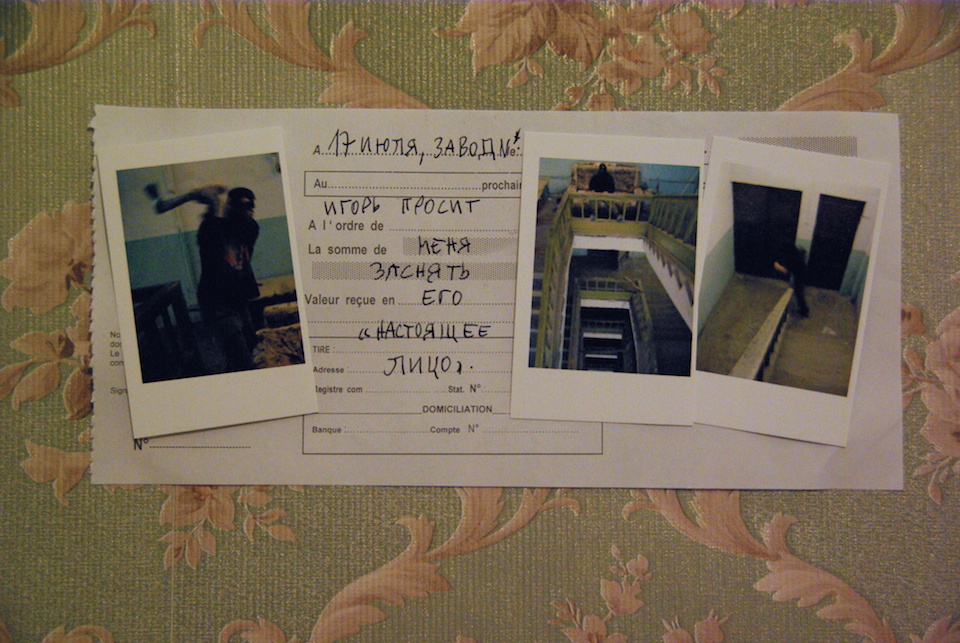 A 17 ИЮЛЯ, ЗАВОД №
Au prochain
ИГОРЬ ПРОСИТ
A l'ordre de
La somme de МЕНЯ
ЗАСНЯТЬ
Valeur reçue en ЕГО
«НАСТОЯЩЕЕ
TIRE :
ЛИЦО».
Adresse :
Registre com Stat. N°
DOMICILIATION
Banque : Compte N°
Sign
N°